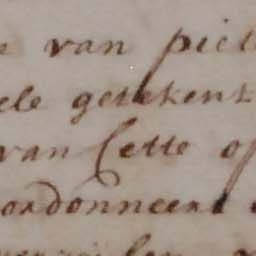 van piet
ele getekent
van Cette op
ordonneert